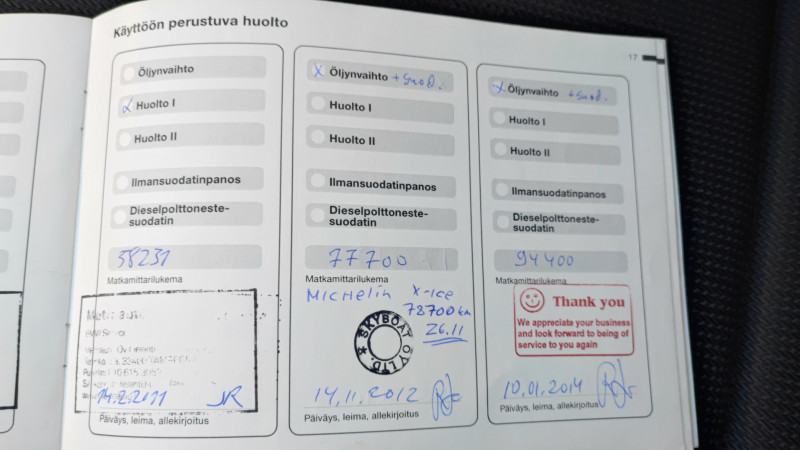 Käyttöön perustuva huolto
17
Öljynvaihto
x Huolto I
Huolto II
Ilmansuodatinpanos
Dieselpolttoneste-
suodatin
58231
Matkamittarilukema
14.2.2011
Päiväys, leima, allekirjoitus
x Öljynvaihto + suod.
Huolto I
Huolto II
Ilmansuodatinpanos
Dieselpolttoneste-
suodatin
77700
Matkamittarilukema
Michelin X-ice
78700 km
26.11
SKYBOAT OY LTD. *
14.11.2012
Päiväys, leima, allekirjoitus
x Öljynvaihto + suod.
Huolto I
Huolto II
Ilmansuodatinpanos
Dieselpolttoneste-
suodatin
94400
Matkamittarilukema
Thank you
We appreciate your business
and look forward to being of
service to you again
10.01.2014
Päiväys, leima, allekirjoitus